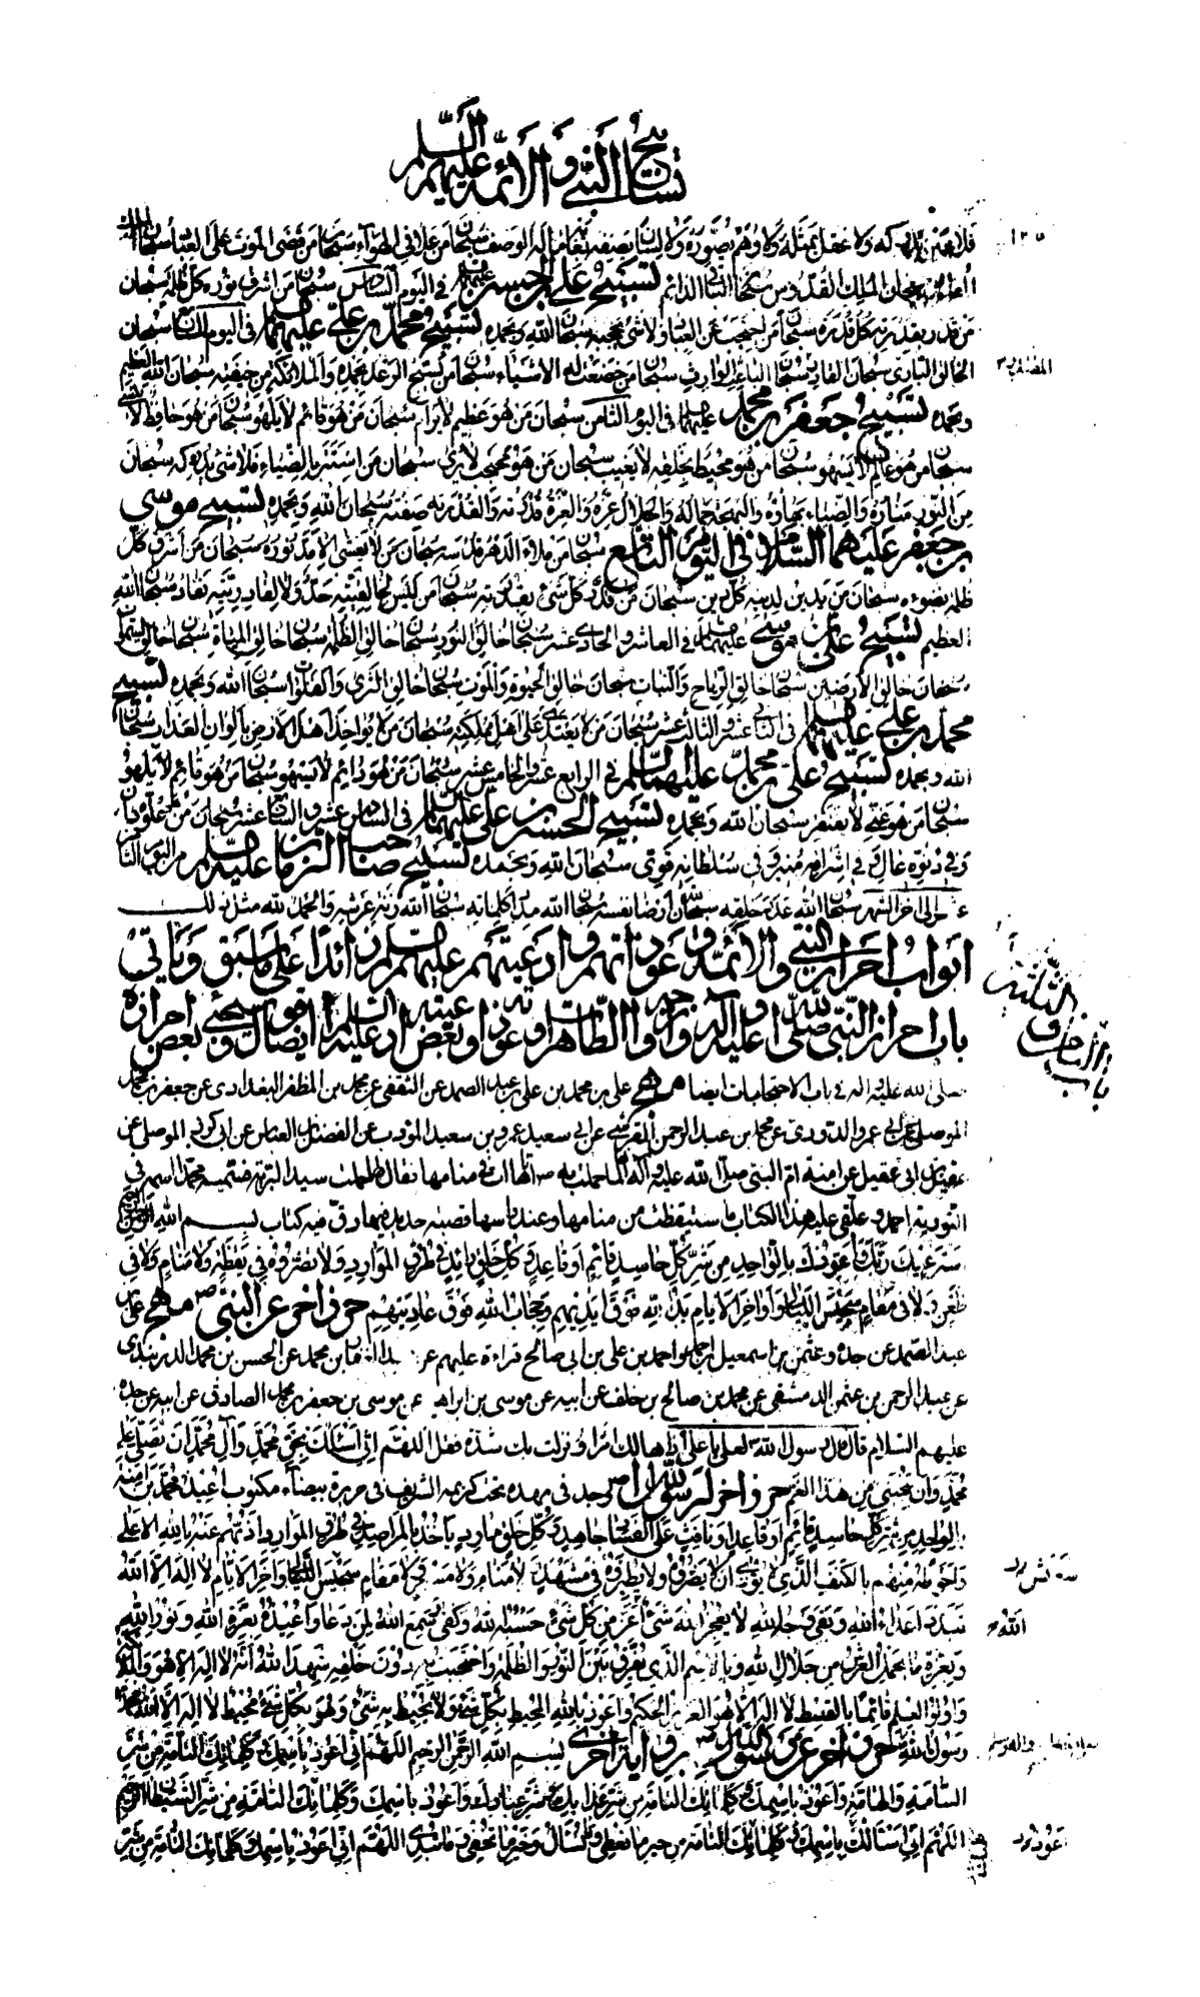 تسابيح النبي و الأئمة عليهم السلم
فلا عين تدركه وَلا عقل يمثله وَلا وهم يصوره وَلا لسان يصفه بغاية ماله الوصف سبحان من علا في الهوآء سبحان من قضى الموت على العباد سبحان الملك
سبحان الملك القدوس سبحان الباقي الدائم تسبيح علي بن الحسين عليهما في اليوم السادس سبحان من اشرق نوره كل ظلمة سبحان
من قدر بقدرته كل قدرة سبحان من احتجب عن العباد ولا شئ يحجبه سبحان الله وبحمده تسبيح محمد بن علي عليهما السلم في اليوم السابع سبحان
الخالق البارئ سبحان القادر سبحان الباعث الوارث سبحان من خضعت له الاشياء سبحان من تسبح الرعد بحمده والملائكة من خيفته سبحان الله العظيم
وبحمده تسبيح جعفر بن محمد عليهما السلم في اليوم الثامن سبحان من هو عظيم لا يرام سبحان من هو قائم لا يلهو سبحان من هو حافظ لا ينسى
سبحان من هو عالم لا يسهو سبحان من هو محيط بخلقه لا يغيب سبحان من هو محتجب لا يرى سبحان من استتر بالضياء فلا شئ يدركه سبحان
من النور مناره والضياء بهاؤه والبهجة جماله والجلال عزه والعزة قدرته والقدرة صفته سبحان الله وبحمده تسبيح موسى
بن جعفر عليهما السلام في اليوم التاسع سبحان من ملاء الدهر قدسه سبحان من لا يغشى الامد نوره سبحان من أشرق كل
ظلمة بضوءه سبحان من يدين لدينه كل دين سبحان من قدر كل شئ بقدرته سبحان من ليس لخالقيته حد ولا لقادريته نفاد سبحان الله
العظيم تسبيح علي بن موسى عليهما السلم في العاشر والحادي عشر سبحان خالق النور سبحان خالق الظلمة سبحان خالق المياه سبحان خالق السموات
سبحان خالق الأرضين سبحان خالق الرياح والنبات سبحان خالق الحيوة والموت سبحان خالق الثرى والفلوات سبحان الله وبحمده تسبيح
محمد بن علي عليهما السلم في الثاني عشر والثالث عشر سبحان من لا يعتدي على اهل مملكته سبحان من لا يؤاخذ اهل الارض بالوان العذاب سبحان
الله وبحمده تسبيح علي بن محمد عليهما السلم في الرابع عشر والخامس عشر سبحان من هو دائم لا يسهو سبحان من هو قائم لا يلهو
سبحان من هو غني لا يفتقر سبحان الله وبحمده تسبيح الحسن بن علي عليهما السلم في السادس عشر والسابع عشر سبحان من هو في علوه دان
وفي دنوه عال وفي اشراقه منير وفي سلطانه قوي سبحان الله وبحمده تسبيح صاحب الزمان عليه السلم من اليوم الثامن
عشر الى اخر الشهر سبحان الله عدد خلقه سبحان الله رضا نفسه سبحان الله مداد كلماته سبحان الله زنة عرشه والحمد لله مثل ذلك
ابواب احراز النبي والأئمة وعوذاتهم وادعيتهم عليهم السلم زائدا على ما سبق و يأتي
باب احراز النبي صلى الله عليه وآله وازواجه الطاهرات وعوذاته وبعض ادعيته عليه السلم ايضا
صلى الله عليه واله في باب الاحتجابات ايضا مهج علي بن محمد بن علي بن عبد الصمد عن الثقفي عن محمد بن المظفر البغدادي عن جعفر بن محمد
الموصلي عن ابي عمرو الدوري عن محمد بن عبد الرحمن القرشي عن ابي سعيد عمرو بن سعيد المؤدب عن الفضل بن العباس عن ابي كرز الموصلي عن
عقيل بن ابي عقيل عن امنة ام النبي صلى الله عليه وآله لما حملت به ص اتاها ات في منامها فقال لها حملت سيد البرية فسميه محمدا اسمه في
التورية احمد وعلقي عليه هذا الكتاب فاستيقظت من منامها وعند راسها قصبة حديد فيها رق فيه كتاب بسم الله الرحمن الرحيم
استرعيك ربك واعوذك بالواحد من شر كل حاسد قائم او قاعد وكل خلق رائد في طرق الموارد ولا تضروه في يقظة ولا منام ولا في
ظعن ولا في مقام سجيس الليالي واواخر الايام يد الله فوق ايديهم وحجاب الله فوق عاديتهم حرز اخر عن النبي ص مهج علي بن
عبد الصمد عن جده وعثمن بن اسمعيل بن احمد واحمد بن علي بن ابي صالح قراءة عليهم عن محمد عن الحسن بن محمد
عن عبد الرحمن بن عثمن الدمشقي عن محمد بن صالح بن خلف عن ابيه عن موسى بن ابراهيم عن موسى بن جعفر بن محمد الصادق عن ابيه عن جده
عليهم السلام قال قال رسول الله لعلي يا علي اذا هالك امر او نزلت بك شدة فقل اللهم اني اسئلك بحق محمد وآل محمد ان تصلي على
محمد وان تنجيني من هذا الغم حرز اخر لرسول الله ص وجد في مهده تحت كريمه الشريف في حريرة بيضآء مكتوب اعيذ محمد بن امنة
بالواحد من شر كل حاسد قائم او قاعد او نافث على الفساد جاهد وكل خلق مارد ياخذ بالمراصد في طرق الموارد اذبهم عنه بالله الاعلى
واحوطه منهم بالكنف الذي لا يؤذى ان لا يضروه ولا يطيروه في مشهد ولا منام ولا مسير ولا مقام سجيس الليالي واخر الايام لا اله الا الله
تبدد اعداء الله وبقي وجه الله لا يعجز الله شئ الله أعز من كل شئ حسبه الله وكفى سمع الله لمن دعا واعيذه بعزة الله ونور الله
وبعزة ما يحمل العرش من جلال الله وبالاسم الذي يفرق بين النور والظلمة واحتجب به دون خلقه شهد الله أنه لا اله الا هو والملائكة
واولوا العلم قائما بالقسط لا اله الا هو العزيز الحكيم واعوذ بالله المحيط بكل شئ ولا يحيط به شئ وهو بكل شئ محيط لا اله الا الله محمد
رسول الله حرز اخر عن رسول الله ص برواية اخرى بسم الله الرحمن الرحيم اللهم اني اعوذ باسمك وكلماتك التامة من شر
السامة والهامة واعوذ باسمك وكلماتك التامة من شر عذابك وشر عبادك واعوذ باسمك وكلماتك التامة من شر الشيطان الرجيم
اللهم اني اسئالك باسمك وكلماتك التامة من خير ما تعطي وما تسئال وخير ما تخفي وما تبدي اللهم اني اعوذ باسمك وكلماتك التامة من شر
اللهم
اعوذ